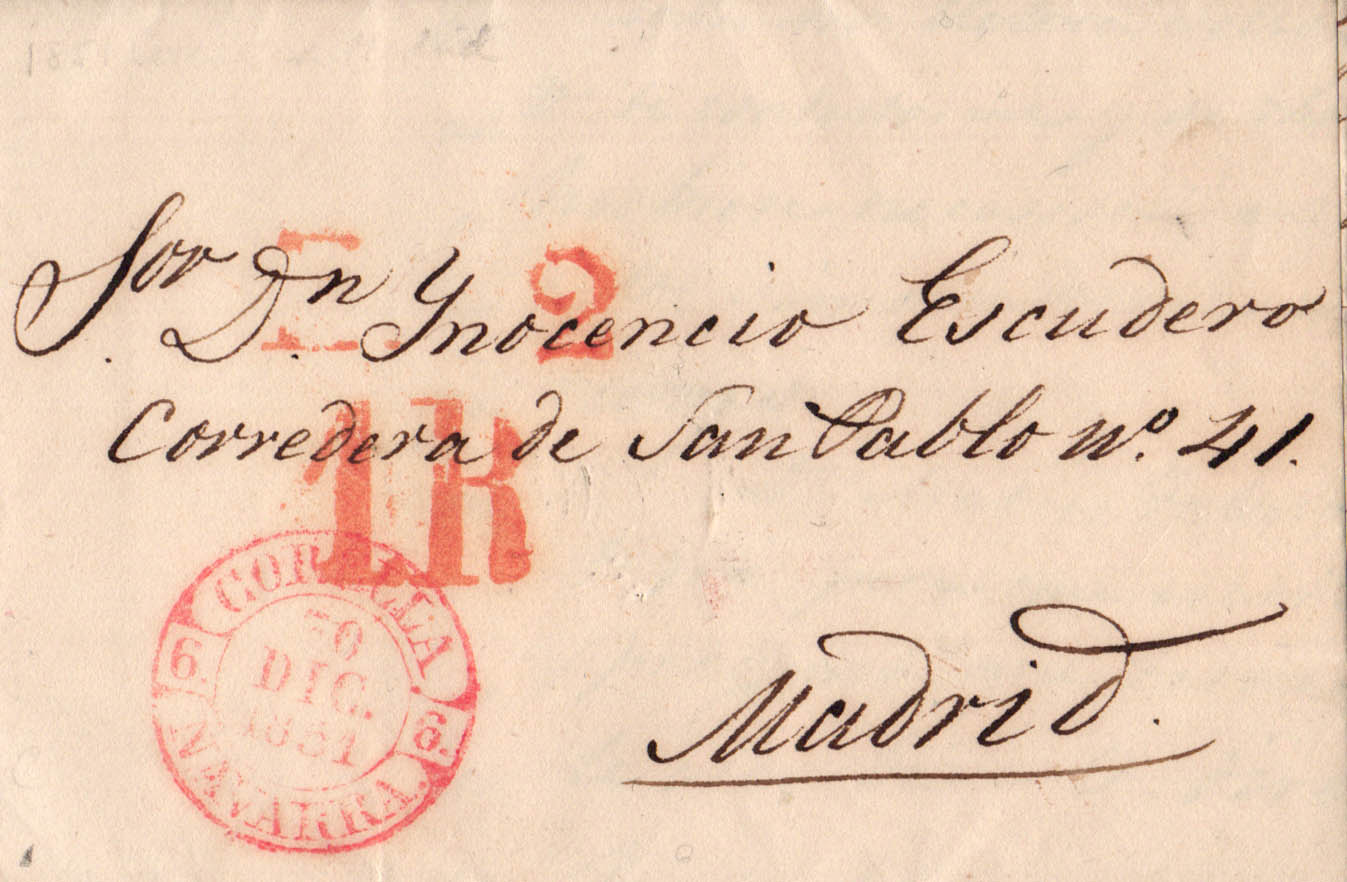 Sor Dn. Ynocencio Escudero
2
Corredera de San Pablo No. 41.
1R
CORELLA
DIC.
6. 6.
NAVARRA.
Madrid.